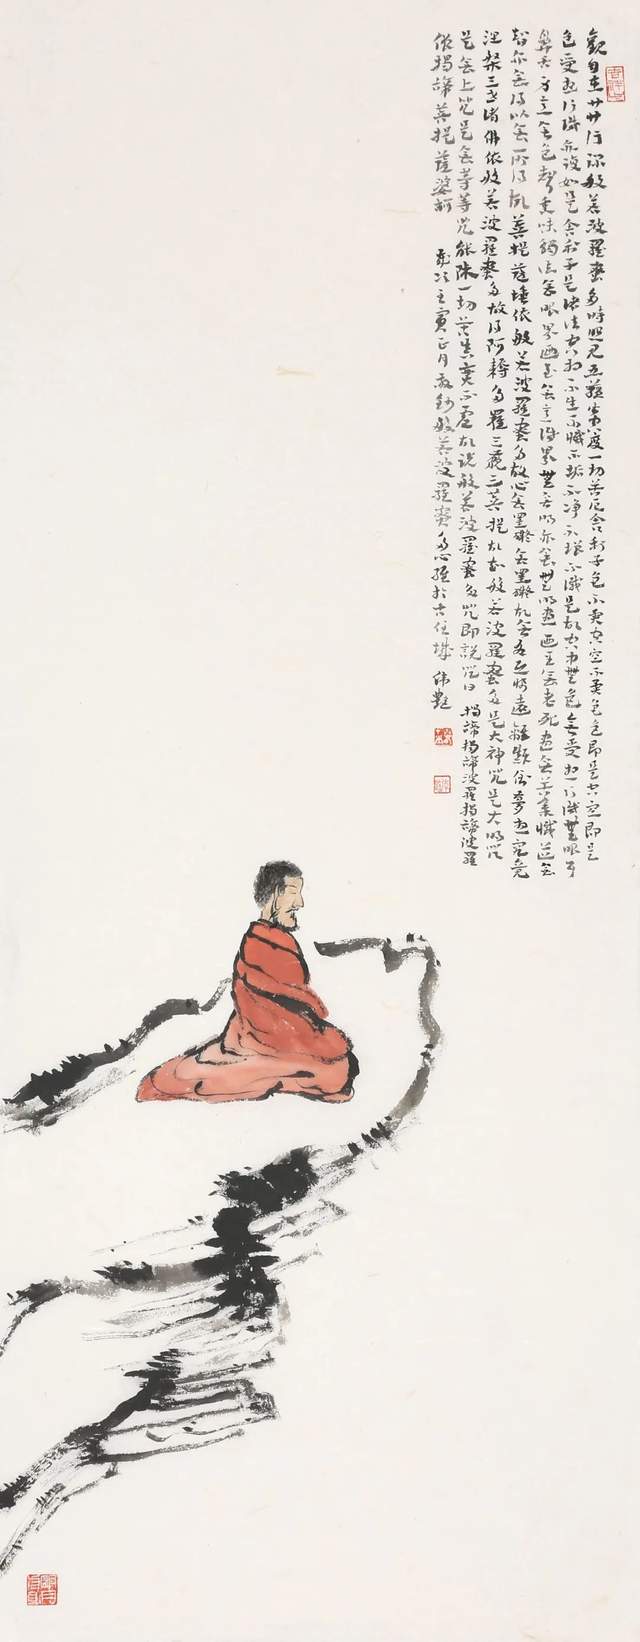 觀自在卄卄行深般若波羅蜜多時照見五蘊皆空度一切苦厄舍利子色不異空空不異色色即是空空即是
色受想行識亦復如是舍利子是諸法空相不生不滅不垢不净不增不減是故空中無色無受想行識無眼耳
鼻舌身意無色聲香味觸法無眼界乃至無意識界無無明亦無無明盡乃至無老死盡無苦集滅道無
智亦無得以無所得故菩提薩埵依般若波羅蜜多故心無罣礙無罣礙故無有恐怖遠離顛倒夢想究竟
涅槃三世諸佛依般若波羅蜜多故得阿耨多羅三藐三菩提故知般若波羅蜜多是大神咒是大明咒
是無上咒是無等等咒能除一切苦真實不虛故說般若波羅蜜多咒即說咒曰 揭諦揭諦波羅揭諦波羅
僧揭諦菩提薩婆訶 歲次壬寅正月敬鈔般若波羅蜜多心經於古任城